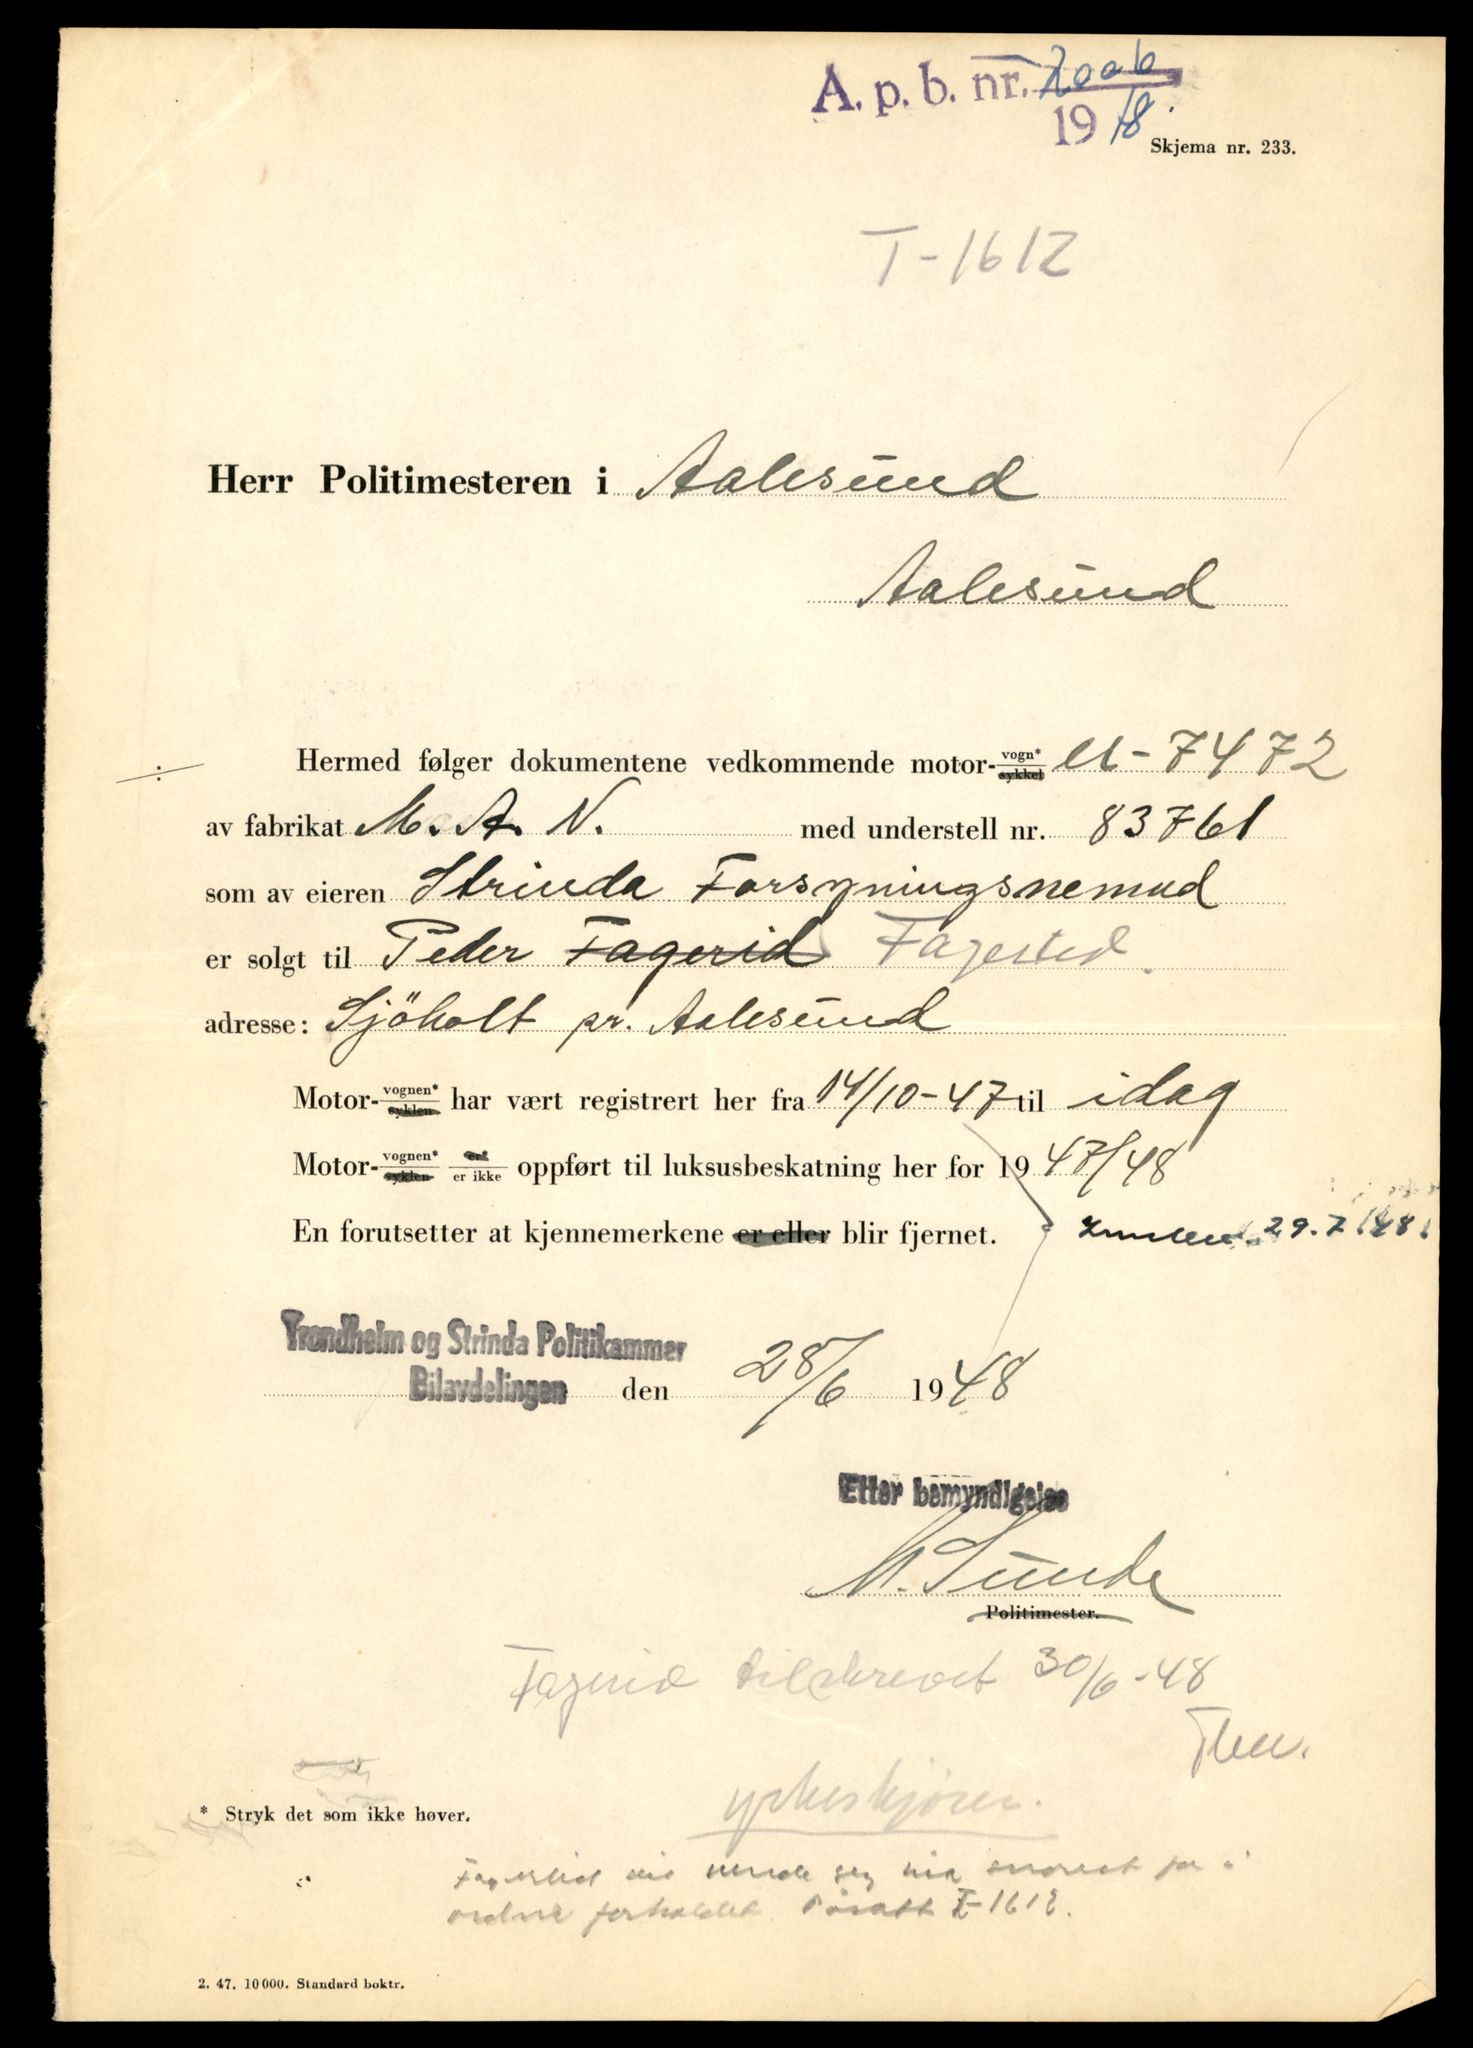 A. p. b. nr. 2006
1948.
Skjema nr. 233.
T-1612
Herr Politimesteren i Aalesund
Aalesund
Hermed følger dokumentene vedkommende motor- vogn* / sykkel U-7472
av fabrikat M. A. N. med understell nr. 83761
som av eieren Strinda Forsyningsnemnd
er solgt til Peder Fagerid Fagerlid.
adresse: Sjöholt pr. Aalesund
Motor- vognen* / syklen har vært registrert her fra 14/10-47 til idag
Motor- vognen* / syklen er / er ikke oppført til luksusbeskatning her for 1947/48
En forutsetter at kjennemerkene er eller blir fjernet.
29.7.48.
Trondheim og Strinda Politikammer
Bilavdelingen den 28/6 1948
Etter bemyndigelse
M. Sunde
Politimester.
Fagerid tilskrevet 30/6-48
yrkeskjører.
* Stryk det som ikke høver.
Fagerlid vil melde seg snarest for å
ordne forholdet. Påsatt T-1612.
2. 47. 10 000. Standard boktr.